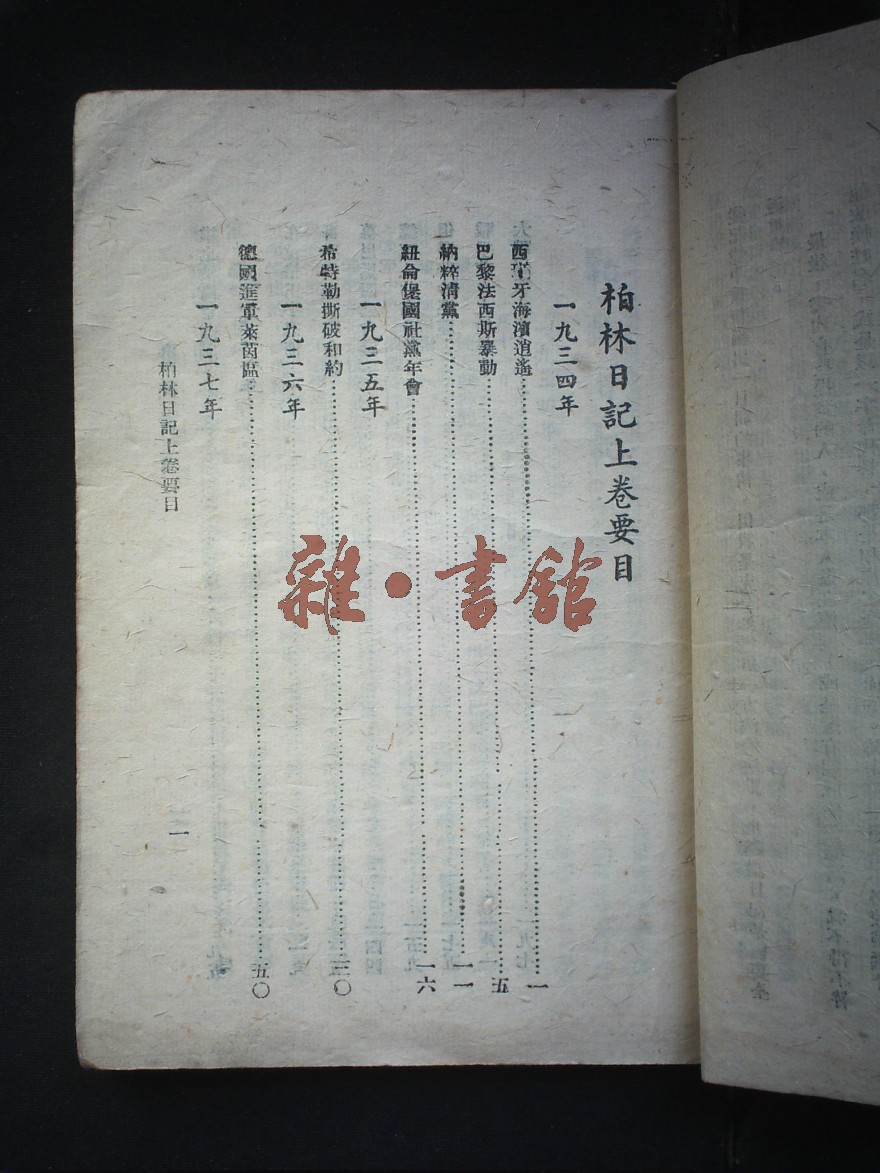 柏林日記上卷要目
一九三四年
西班牙海濱逍遙……一
巴黎法西斯暴動……五
納粹清黨……一一
紐侖堡國社黨年會……一六
一九三五年
希特勒撕破和約……三〇
一九三六年
德國進軍萊茵區……五〇
一九三七年
柏林日記上卷要目
一
雜·書館